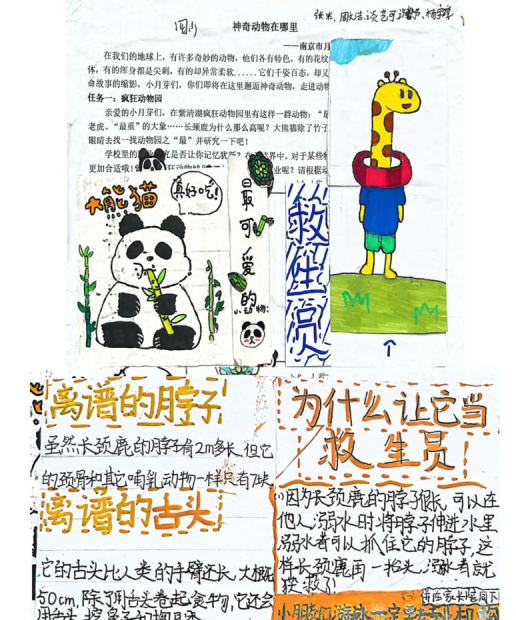 四小
神奇动物在哪里
——南京市月
在我们的地球上，有许多奇妙的动物，他们各有特色，有的花纹
体，有的浑身都是尖刺，有的却异常柔软……它们千姿百态，却又
命故事的缩影，小月芽们，你们即将在这里邂逅神奇动物，走进动物
任务一：疯狂动物园
亲爱的小月芽们，在紫清湖疯狂动物园里有这样一群动物：“
老虎、“最重”的大象……长颈鹿为什么那么高呢？大熊猫除了竹子
眼睛去找一找动物园之“最”并研究一下吧！
学校里的
是否让你记忆犹新？在
界中，对于某些特
更加合适哦！
狂动物城
业呢？请根据动
大熊猫
真好吃！
最可爱的
小动物：
救生员
离谱的脖子
虽然长颈鹿的脖子有2m多长，但它
的颈骨和其它哺乳动物一样只有7块
离谱的舌头
它的舌头比人类的手臂还长，大概
50cm，除了用舌头卷起食物，它还会
为什么让它当
救生员
因为长颈鹿的脖子很长，可以在
他人溺水时将脖子伸进水里
溺水者可以抓住它的脖子，这
样长颈鹿再一抬头，溺水者就
获救了！
小朋友们游泳一定要